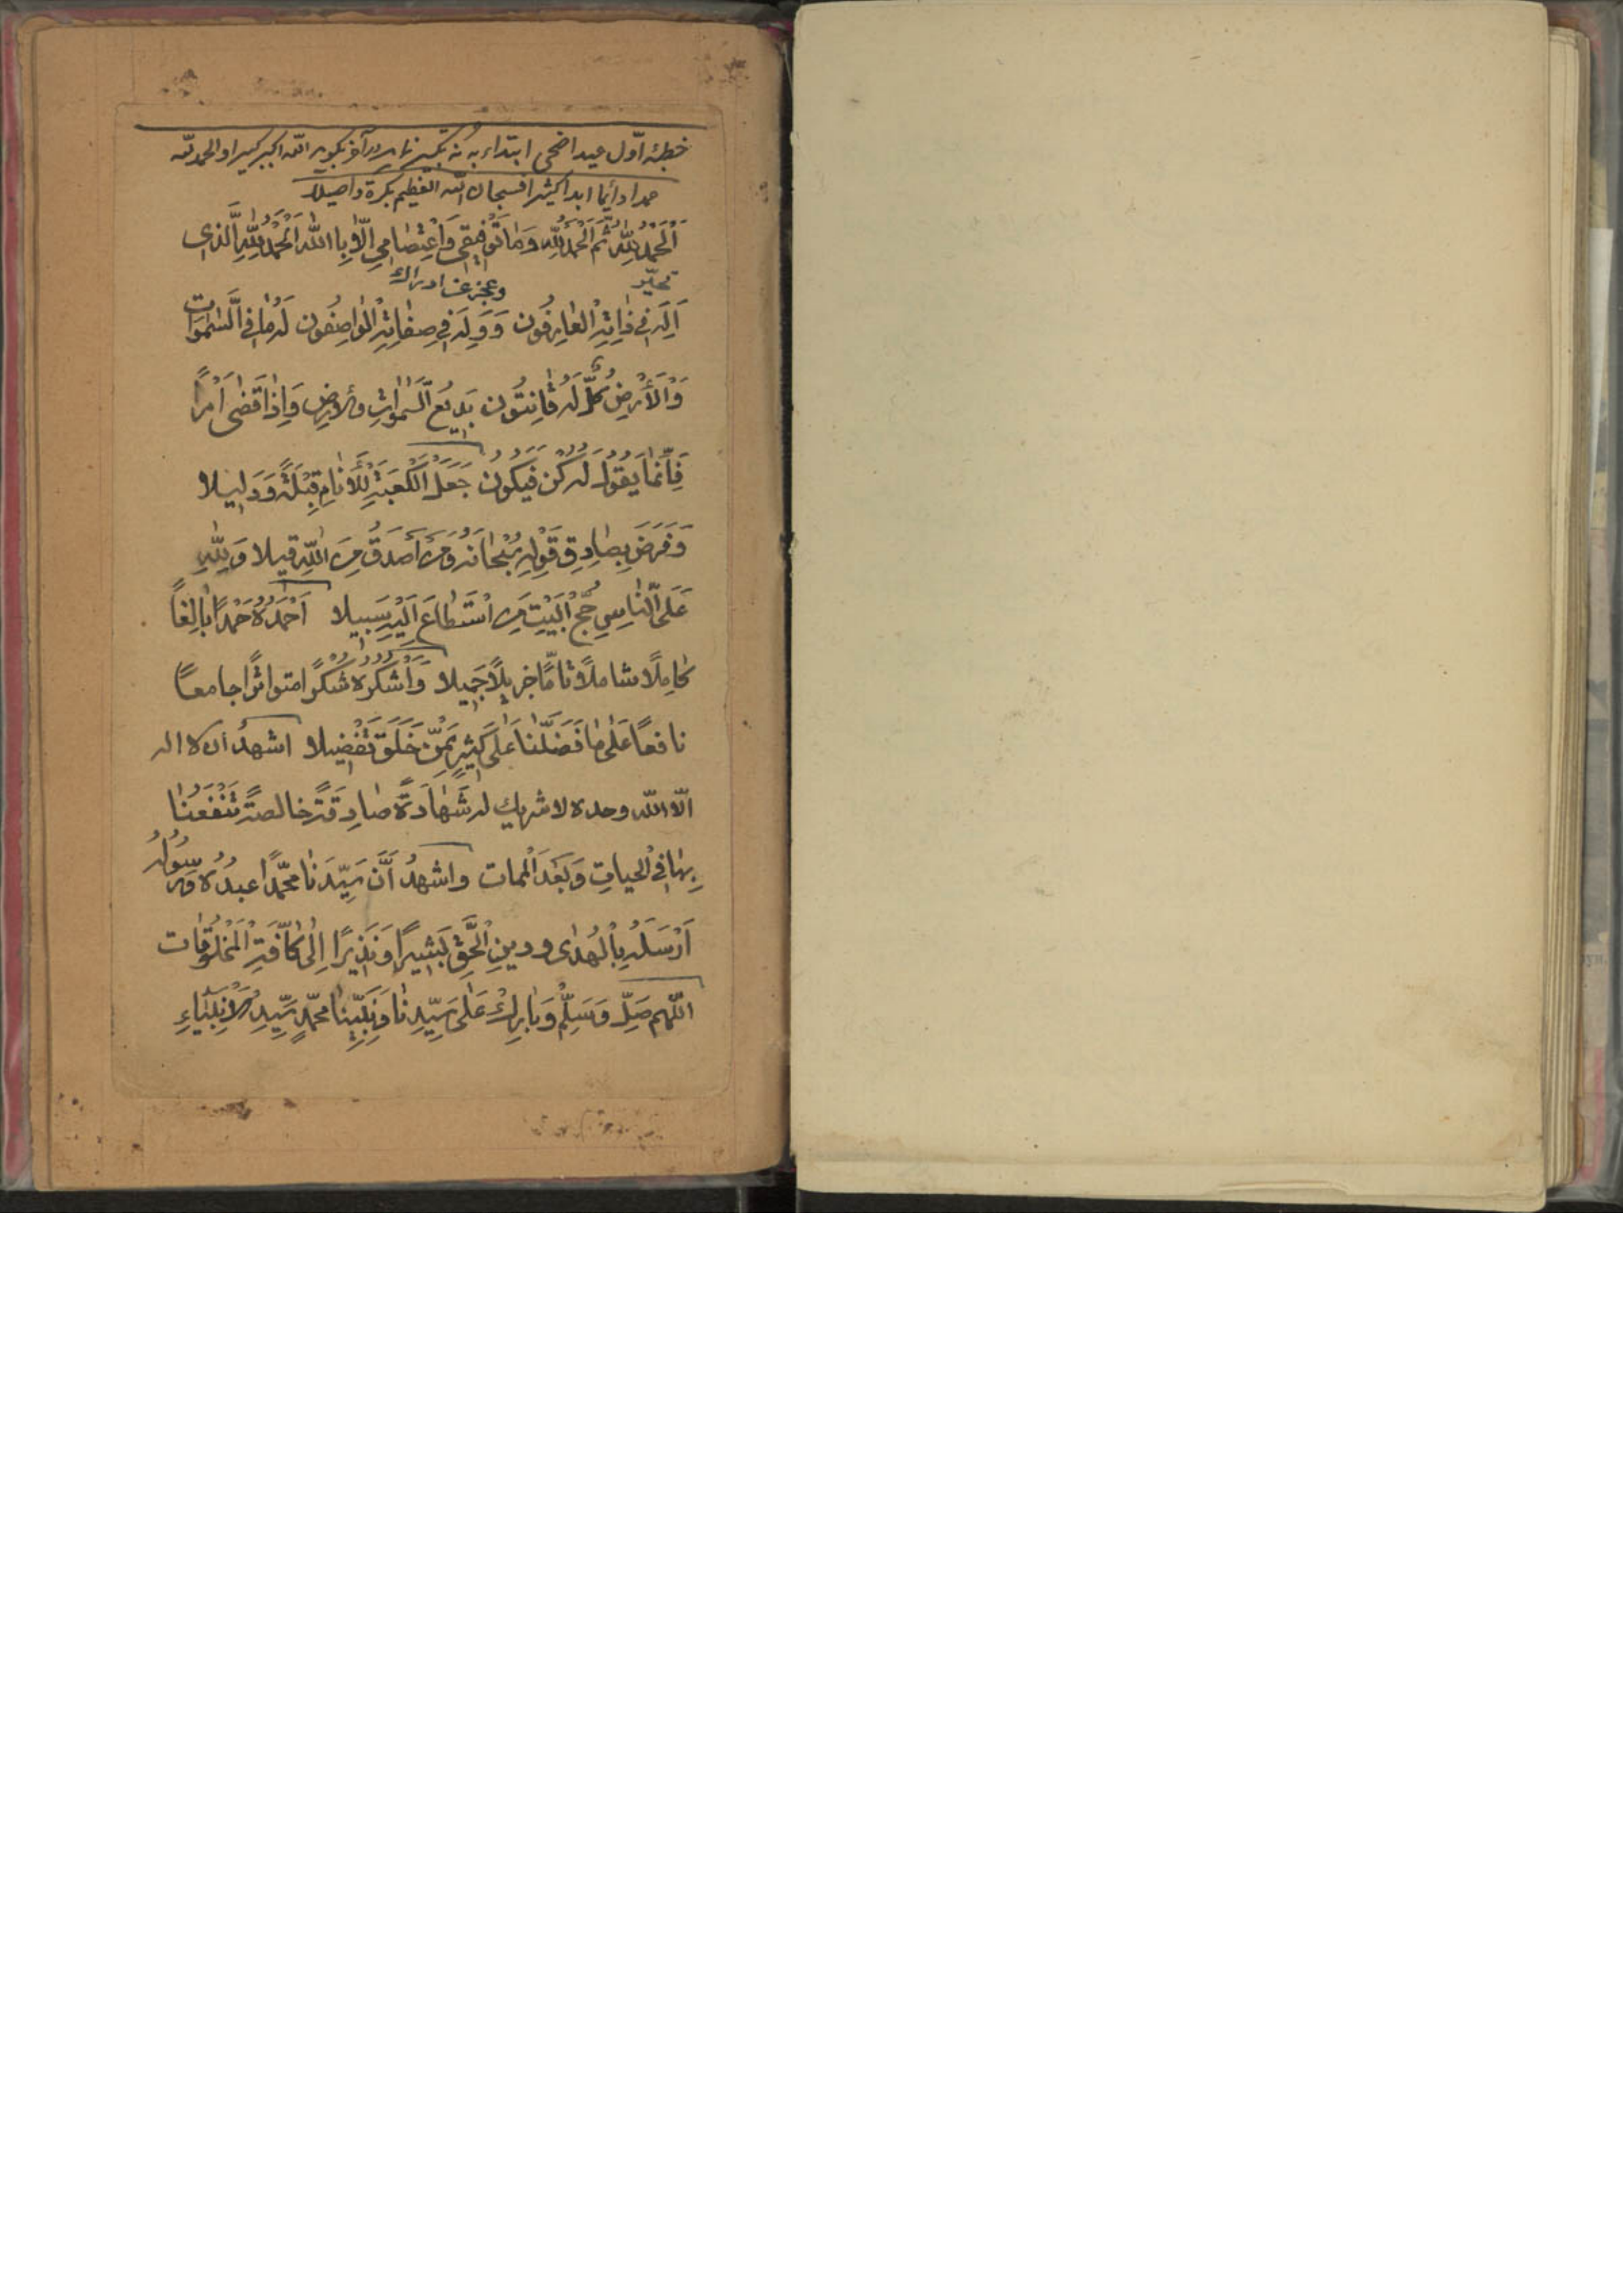 خطبهٔ اوّل عید اضحی ابتداء به نه تکبیر نماید در آخر بگوید الله اکبر کبیرا والحمد لله
حمدا دائما ابدا کثیرا فسبحان الله العظیم بکرة واصیلا
اَلْحَمْدُ لِلّٰهِ ثُمَّ اَلْحَمْدُ لِلّٰهِ وَمٰا تَوْفٖیقٖی وَاعْتِصٰامٖی اِلّٰا بِاالله اَلْحَمْدُ لِلّٰهِ الَّذی
تحیّر وعجز عن ادراك
اَلِهَ فٖی ذٰاتِهِ الْعٰارِفُون وَوَلِهَ فٖی صِفٰاتِهِ الْوٰاصِفُون لَهُ مٰا فِی السَّمٰوٰات
وَالْأَرْضِ كُلٌّ لَهُ قٰانِتُون بَدٖیعُ السَّمٰوٰاتِ والارضِ وَاِذٰا قَضٰی اَمْرًا
فَاِنَّمٰا یَقُولُ لَهُ كُنْ فَیَكُونُ جَعَلَ الْكَعْبَةَ لِلْأَنٰامِ قِبْلَةً وَدَلٖیلا
وَفَرَضَ بِصٰادِقِ قَوْلِهِ سُبْحٰانَهُ وَمَنْ أَصْدَقُ مِنَ اللّٰهِ قیلا وَلِلّٰهِ
عَلَی النّٰاسِ حِجُّ الْبَیْتِ مَنِ اسْتَطٰاعَ اِلَیْهِ سَبٖیلا اَحْمَدُهُ حَمْدًا بٰالِغاً
كٰامِلًا شاملًا تٰامًّا جزیلًا جَمٖیلا وَاَشْكُرُهُ شُكْرًا متواترًا جامعاً
نافعاً عَلٰی مٰا فَضَّلَنٰا عَلٰی كَثٖیرٍ مِمَّنْ خَلَقَ تَفْضٖیلا اشهدُ ان لا اله
الّا الله وحده لا شریك له شَهٰادَةً صٰادِقَةً خالصةً تَنْفَعُنٰا
بِهٰا فِی الحیاتِ وَبَعْدَ الْممات واشهدُ اَنَّ سَیِّدَنٰا محمّدًا عبدُهُ وَرَسُولُهُ
اَرْسَلَهُ بِالْهُدٰی ودینِ الْحَقِّ بَشٖیرًا وَنَذٖیرًا اِلٰی كٰافَّةِ الْمَخْلُوقٰات
اللّٰهم صَلِّ وَسَلِّمْ وَبٰارِكْ عَلٰی سَیِّدِنٰا وَنَبِیِّنٰا محمّدٍ سَیِّدِ الْاَنْبِیٰاءِ